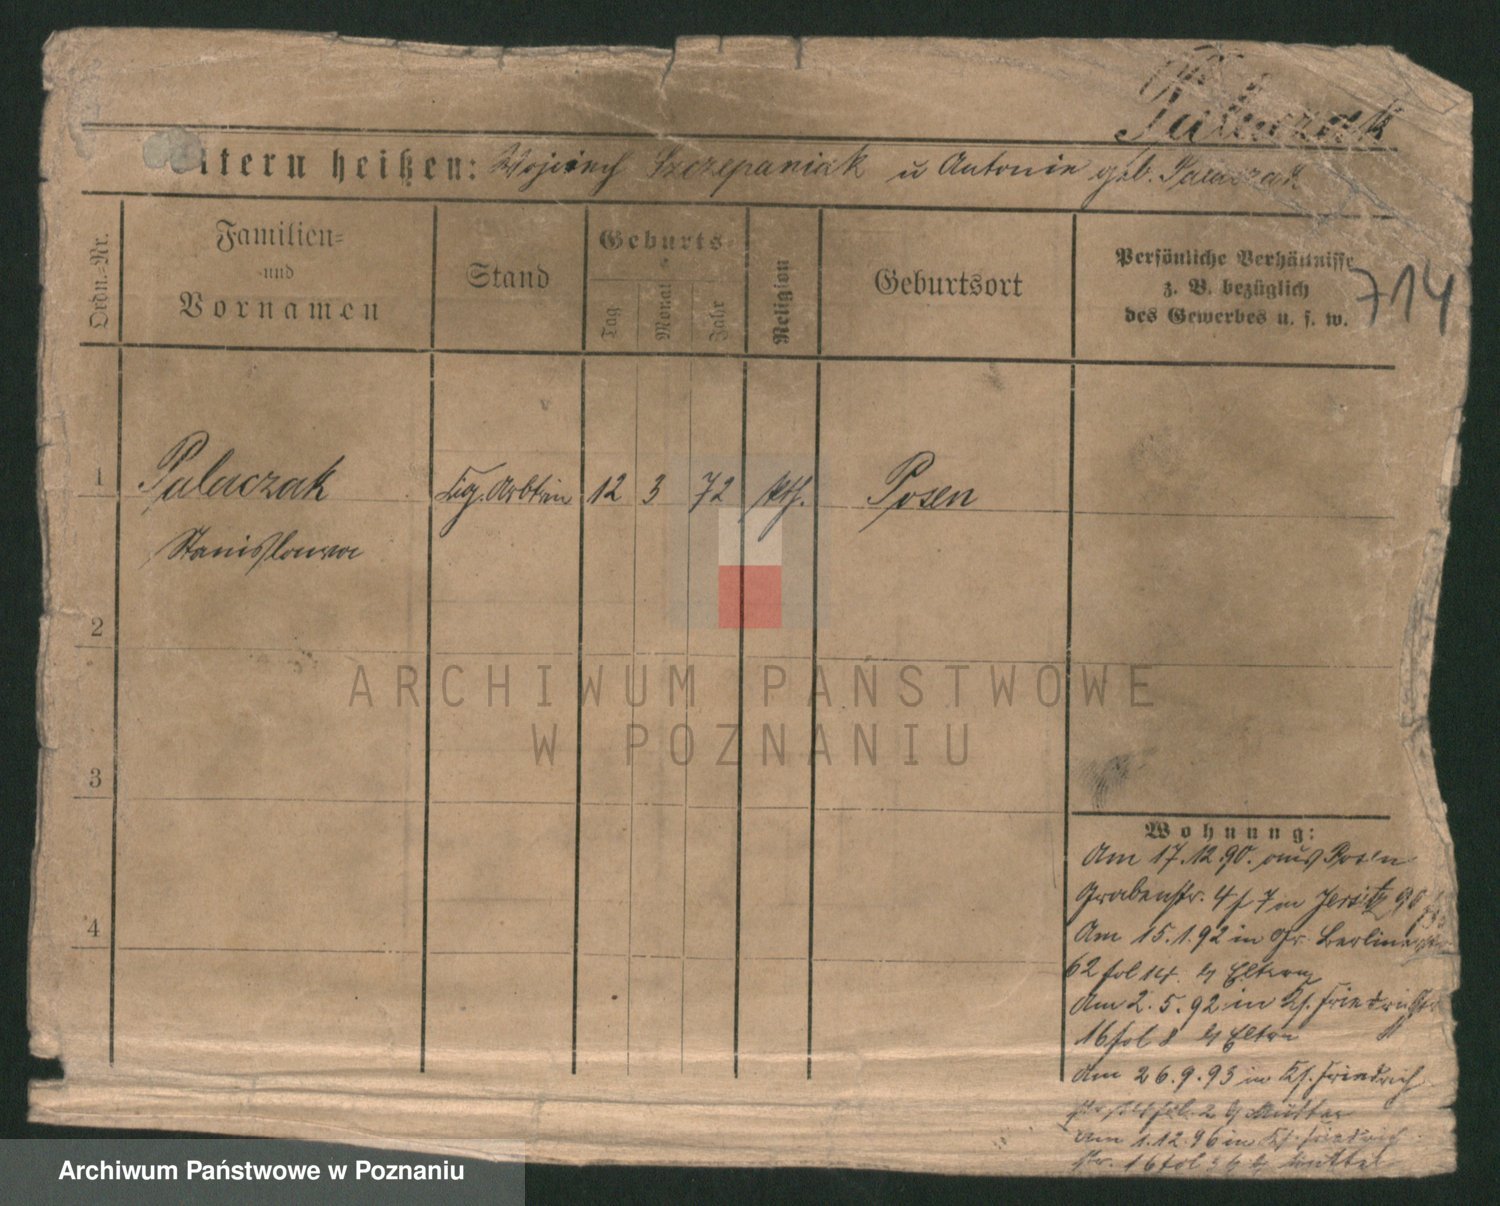 Paluczak
Eltern heißen: Wojciech Szczepaniak u Antonie geb. Paluczak
Ordn.-Nr.
Familien-
und
Vornamen
Stand
Geburts-
Tag
Monat
Jahr
Religion
Geburtsort
Persönliche Verhältnisse
z. B. bezüglich
des Gewerbes u. s. w.
714
1 Paluczak Cig. Arbtrin 12 3 72 kth. Posen
Stanisława
2
3
4
Wohnung:
Am 17.12.90. aus Posen
Grabenstr. 4 / 7 in Jersitz 90
Am 15.1.92 in Gr. Berliner
62 fol 14. Eltern
Am 2.5.92 in Ks. Friedrichstr
16 fol 8 Eltern
Am 26.9.93 in Ks. Friedrich
str fol 2 Mutter
Am 1.12.96 in Ks. Friedrich
str. 16 fol Mutter
ARCHIWUM PAŃSTWOWE
W POZNANIU
Archiwum Państwowe w Poznaniu